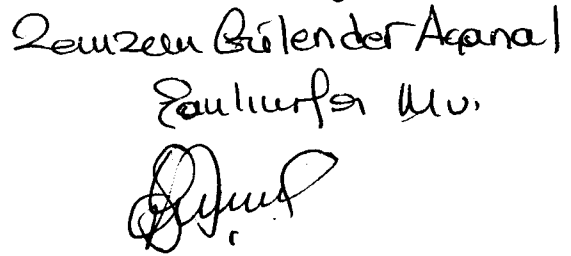 Zemzem Gülender Açanal
Şanlıurfa Mv.